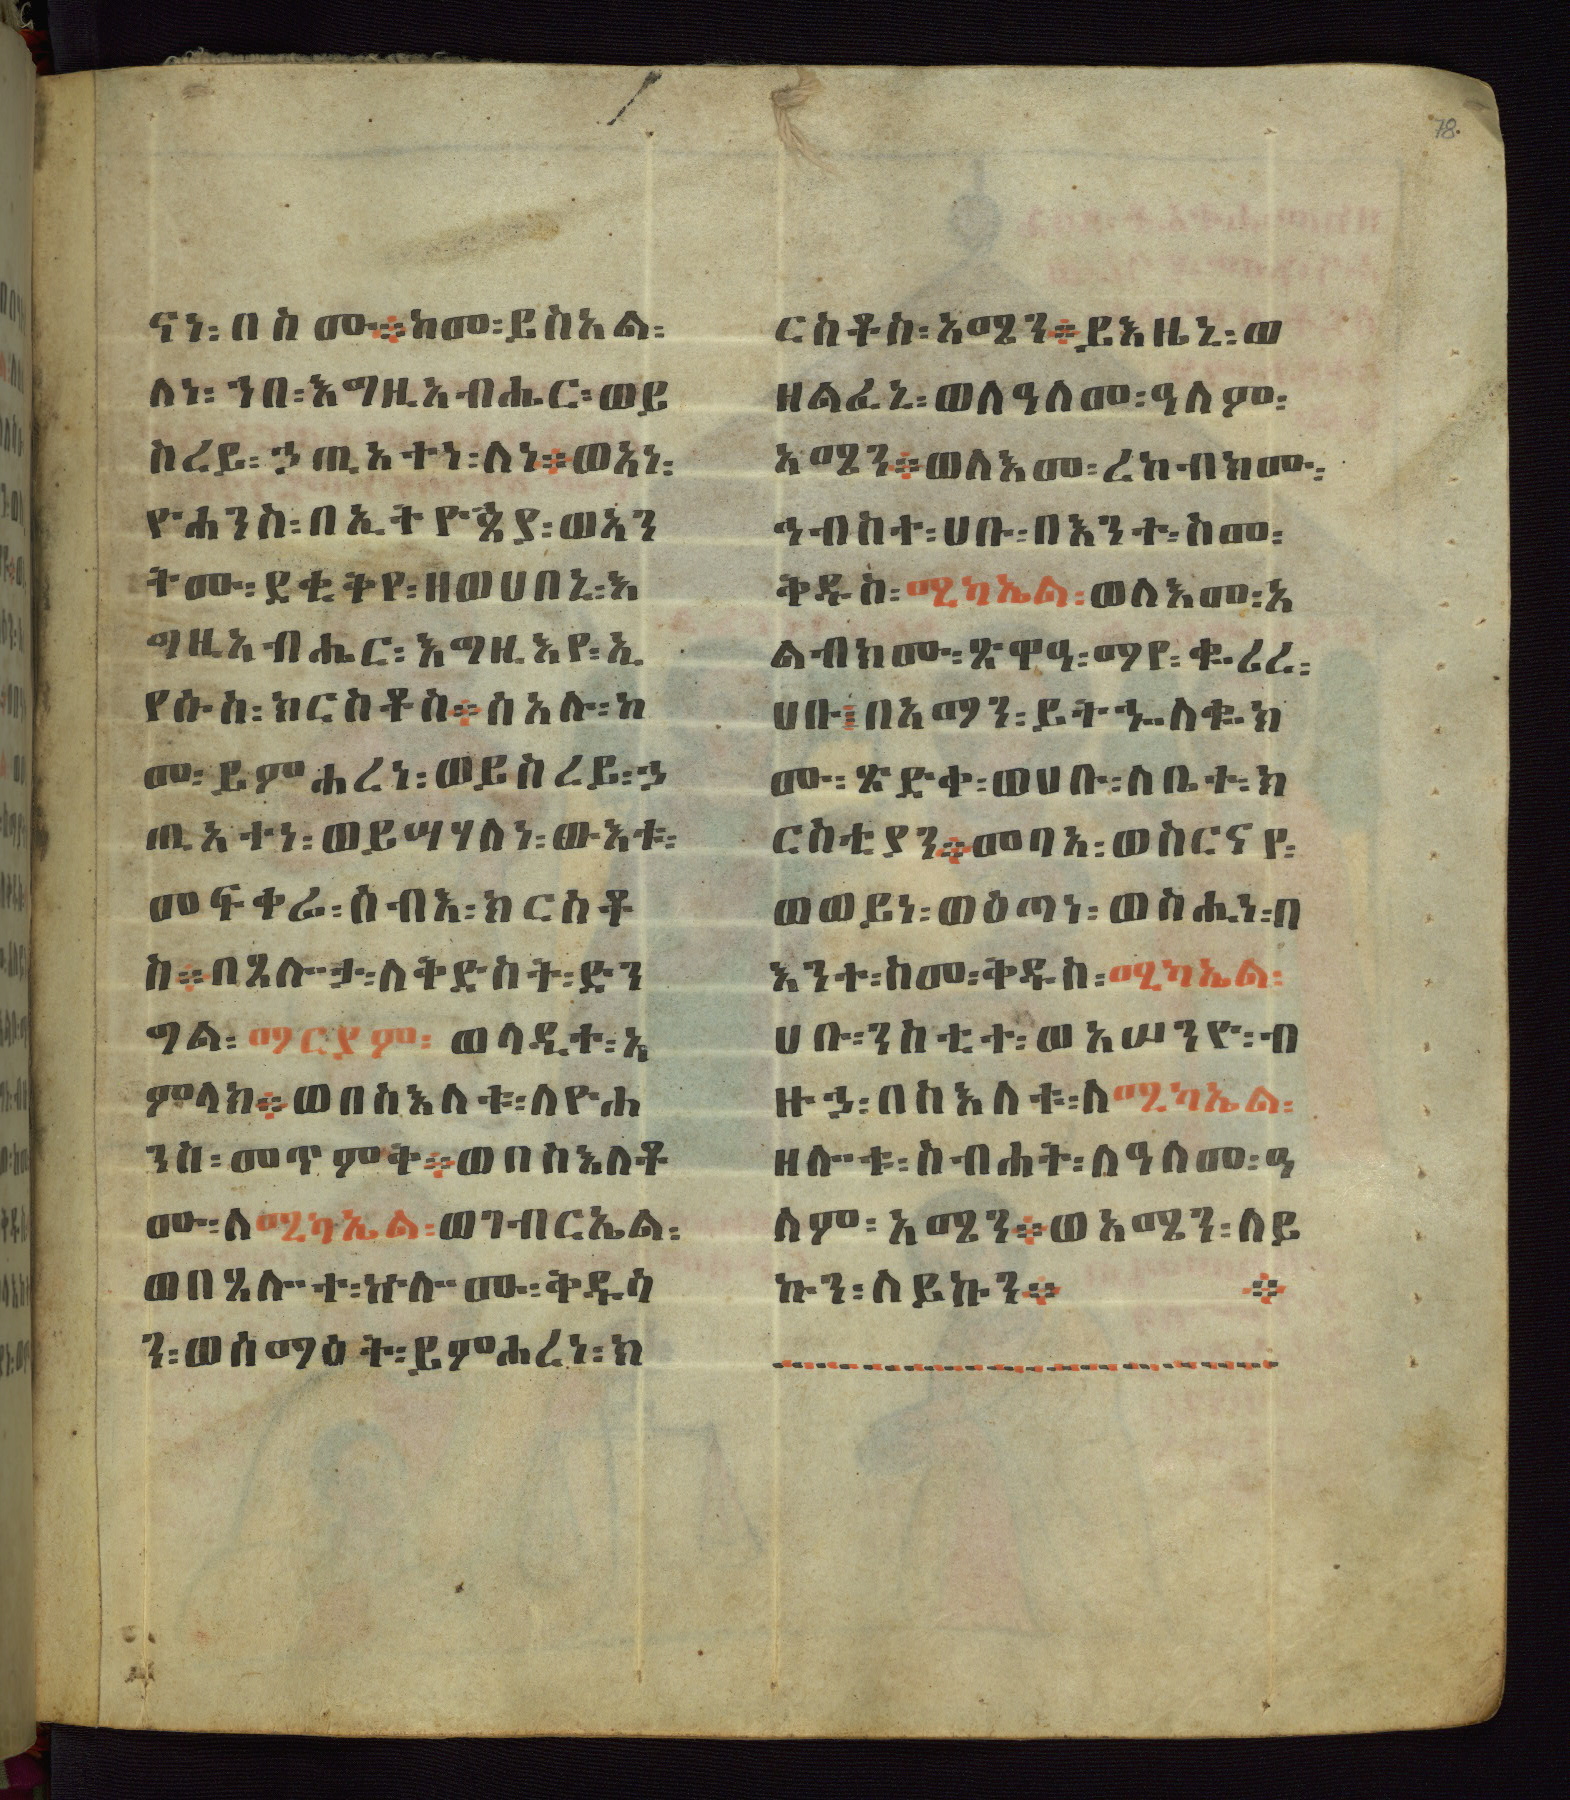 78.
ናነ፡ በስሙ፨ ከመ፡ ይስአል፡
ለነ፡ ኀበ፡ እግዚአብሔር፡ ወይ
ስረይ፡ ኃጢአተነ፡ ለነ፨ ወአነ፡
ዮሐንስ፡ በኢትዮጵያ፡ ወአን
ትሙ፡ ደቂቅየ፡ ዘወሀበኒ፡ እ
ግዚአብሔር፡ እግዚእየ፡ ኢ
የሱስ፡ ክርስቶስ፨ ስአሉ፡ ከ
መ፡ ይምሐረነ፡ ወይስረይ፡ ኃ
ጢአተነ፡ ወይሣሃለነ፡ ውእቱ፡
መፍቀሬ፡ ሰብእ፡ ክርስቶ
ስ፨ በጸሎታ፡ ለቅድስት፡ ድን
ግል፡ ማርያም፡ ወላዲተ፡ አ
ምላክ፨ ወበስእለቱ፡ ለዮሐ
ንስ፡ መጥምቅ፨ ወበስእለቶ
ሙ፡ ለሚካኤል፡ ወገብርኤል፡
ወበጸሎተ፡ ኵሎሙ፡ ቅዱሳ
ን፡ ወሰማዕት፡ ይምሐረነ፡ ክ
ርስቶስ፡ አሜን፨ ይእዜኒ፡ ወ
ዘልፈኒ፡ ወለዓለመ፡ ዓለም፡
አሜን፨ ወለእመ፡ ረከብክሙ፡
ኅብስተ፡ ሀቡ፡ በእንተ፡ ስመ፡
ቅዱስ፡ ሚካኤል፡ ወለእመ፡ አ
ልብክሙ፡ ጽዋዓ፡ ማየ፡ ቈሪረ፡
ሀቡ፤ በአማን፡ ይትኄለቈክ
ሙ፡ ጽድቀ፡ ወሀቡ፡ ለቤተ፡ ክ
ርስቲያን፨ መባአ፡ ወስርናየ፡
ወወይነ፡ ወዕጣነ፡ ወስሒነ፡ በ
እንተ፡ ስመ፡ ቅዱስ፡ ሚካኤል፡
ሀቡ፡ ንስቲተ፡ ወአሠንዮ፡ ብ
ዙኃ፡ በስእለቱ፡ ለሚካኤል፡
ዘሎቱ፡ ስብሐት፡ ለዓለመ፡ ዓ
ለም፡ አሜን፨ ወአሜን፡ ለይ
ኩን፡ ለይኩን፨ ፨